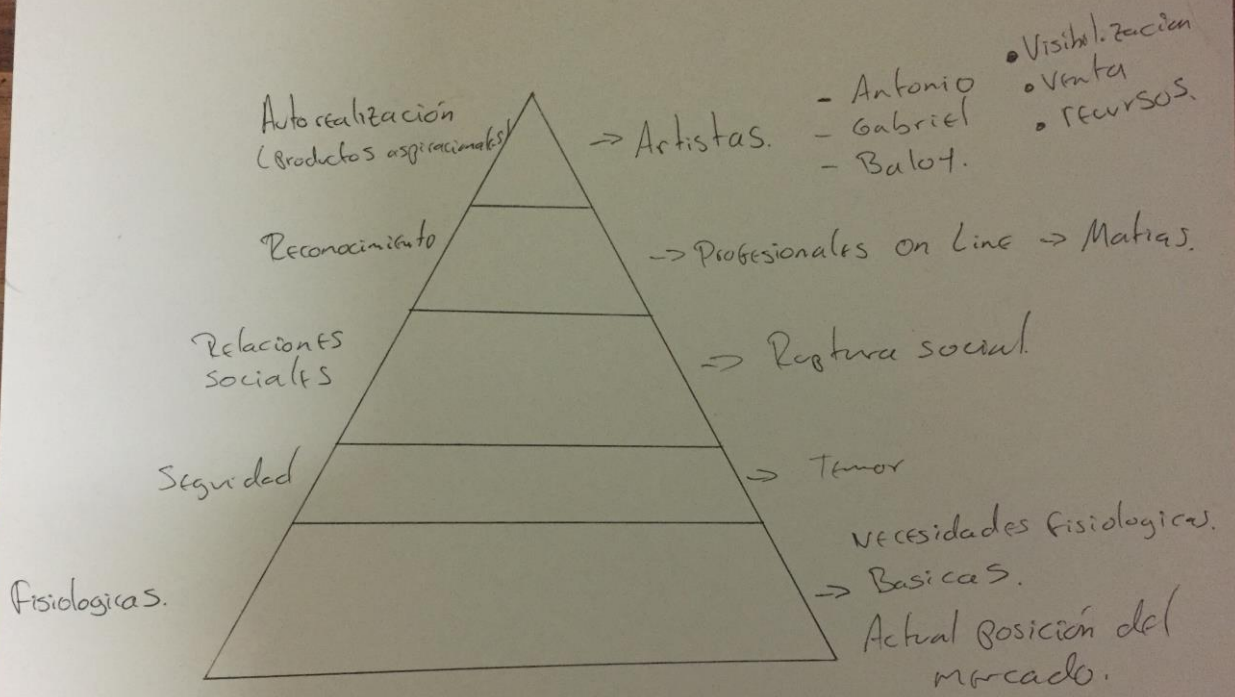 Autorealización
(Productos aspiracionales)
→ Artistas.
- Antonio
- Gabriel
- Baloy.
• Visibilización
• Venta
• recursos.
Reconocimiento
→ Profesionales on Line → Matias.
Relaciones
sociales
→ Ruptura social.
Seguridad
→ Temor
Fisiologicas.
→ Necesidades fisiologicas.
Basicas.
Actual posición del
mercado.